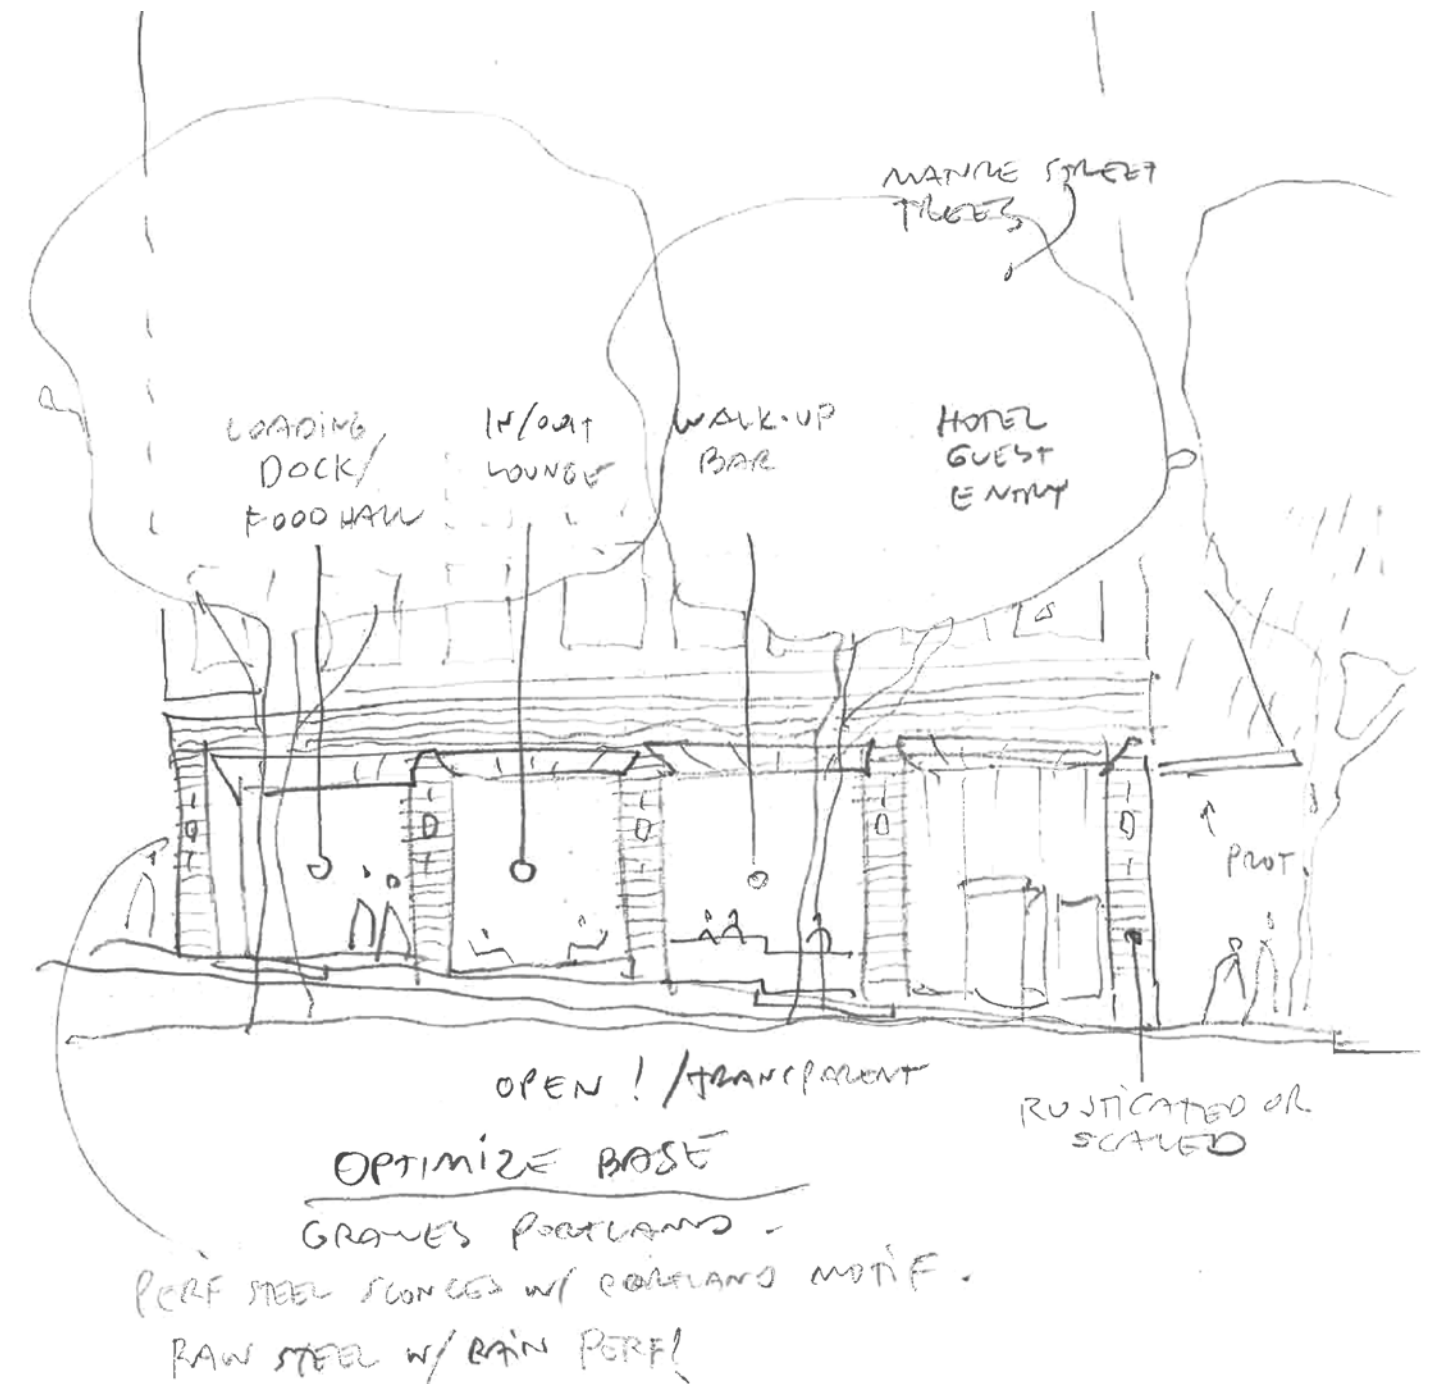 MATURE STREET
TREES
LOADING
DOCK/
FOOD HALL
IN/OUT
LOUNGE
WALK-UP
BAR
HOTEL
GUEST
ENTRY
PROT.
OPEN! / TRANSPARENT
RUSTICATED OR
SCALED
OPTIMIZE BASE
GRAVES PORTLAND.
PERF STEEL SCONCES W/ PORTLAND MOTIF.
RAW STEEL W/ RAIN PERF!